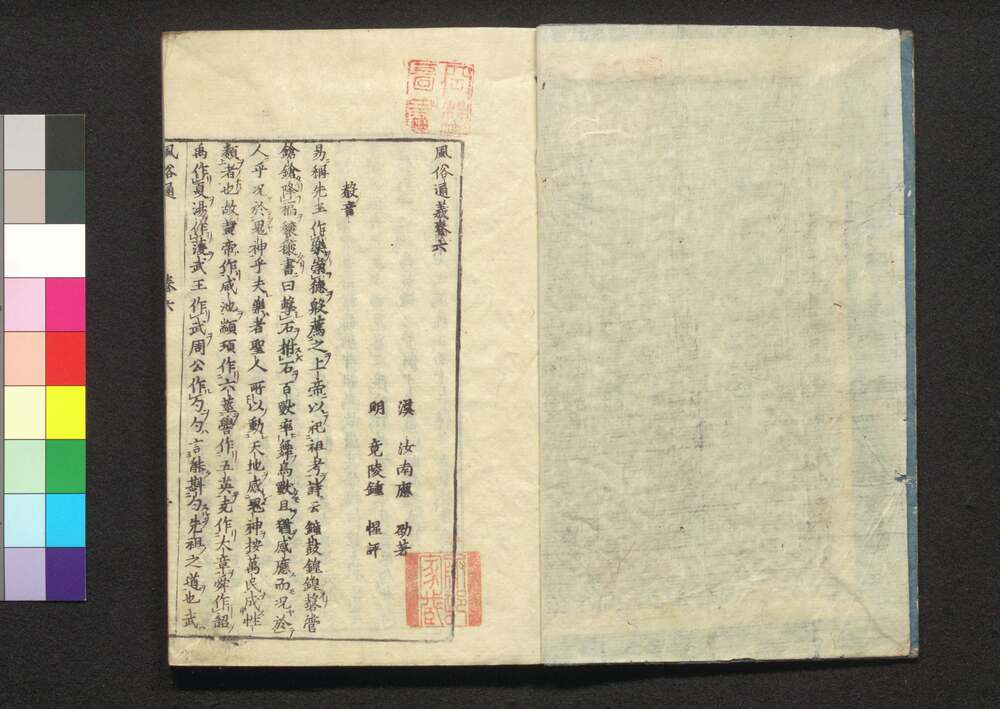 風俗通義卷六
漢 汝南應 劭著
明 竟陵鍾 惺評
聲音
易稱先王作樂崇德殷薦之上帝以配祖考詩云鐘鼓鍠鍠磬管
鎗鎗降福穰穰書曰擊石拊石百獸率舞鳥獸且猶感應而況於
人乎況於鬼神乎夫樂者聖人所以動天地感鬼神按萬民成性
類者也故黃帝作咸池顓頊作六莖嚳作五英堯作大章舜作韶
禹作夏湯作護武王作武周公作勺勺言能斟勺先祖之道也武
風俗通 卷六 一